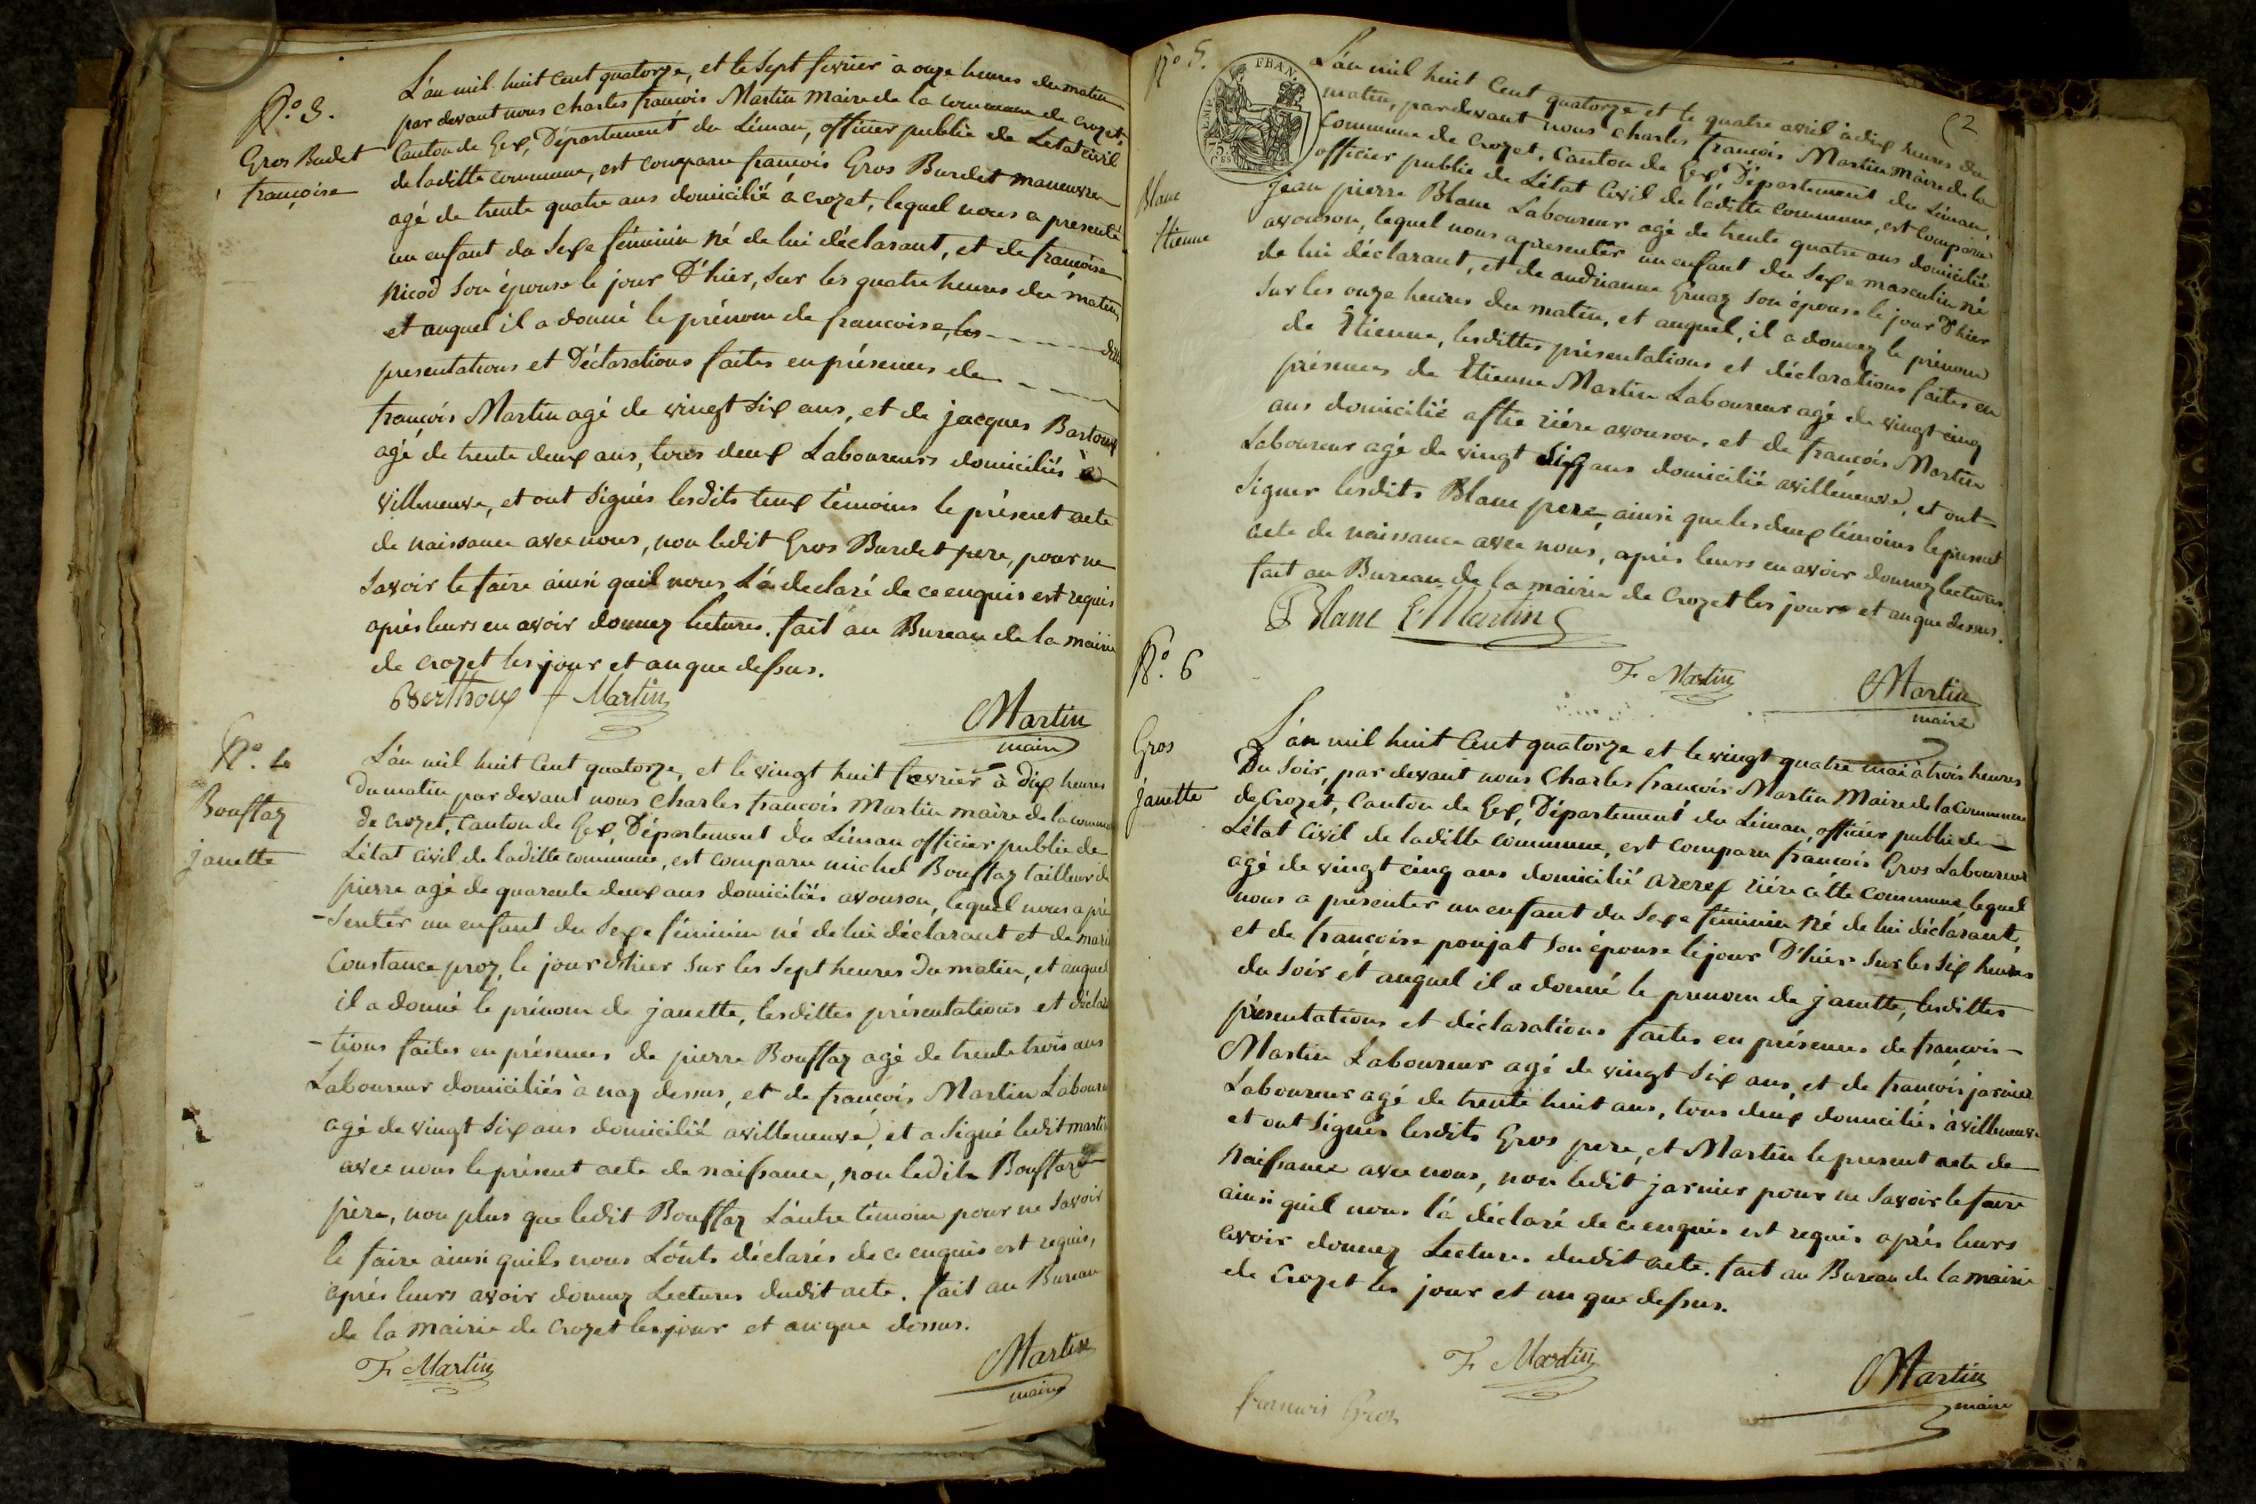 N.º 3.
Gros Budet
françoise
L'an mil huit cent quatorze, et le sept fevrier à onze heures du matin
par devant nous charles françois Martin maire de la commune de crozet,
Canton de Gex, Département du Léman, officier public de L'etat civil
de laditte commune, est comparu françois Gros Burdet manœuvre
agé de trente quatre ans domicilié à crozet, lequel nous a presenté
un enfant du sexe féminin né de lui déclarant, et de françoise
Nicod son épouse le jour D'hier, sur les quatre heures du matin,
et auquel il a donné le prénom de francoise, les ditte
presentations et Déclarations faites en présences de
françois Martin agé de vingt six ans, et de jacques Bartoux
agé de trente deux ans, tous deux Laboureurs domiciliés à
villeneuve, et ont signés lesdits deux témoins le présent acte
de naissance avec nous, non ledit Gros Burdet pere, pour ne
savoir le faire ainsi quil nous L'a declaré de ce enquis est requis
après leurs en avoir donnez lectures. fait au Bureau de la mairie
de crozet les jour et an que dessus.
Berthoux f Martin
Martin
maire
N.º 4
Bouffaz
janette
L'an mil huit cent quatorze, et le vingt huit fevrier à dix heures
du matin par devant nous charles françois Martin maire de la commune
de crozet, canton de Gex, Département du Léman officier public de
L'état civil de laditte commune, est comparu michel Bouffaz tailleur de
pierre agé de quarente deux ans domiciliés avouson, lequel nous a pré
-senter un enfant du sexe féminin né de lui déclarant et de marie
Constance proz, le jour d'hier sur les sept heures du matin, et auquel
il a donné le prénom de janette, lesdittes présentations et déclara
-tions faites en présences de pierre Bouffaz agé de trente trois ans
Laboureur domiciliés à naz dessus, et de françois Martin Laboureur
agé de vingt six ans domicilié avilleneuve, et a signé ledit martin
avec nous le présent acte de naissance, non ledit Bouffaz
père, non plus que ledit Bouffaz L'autre témoin pour ne savoir
le faire ainsi quils nous L'ont déclarés de ce enquis est requis,
après leurs avoir donnez Lectures dudit acte. fait au Bureau
de la mairie de crozet les jour et an que dessus.
F Martin
Martin
maire
N.º 5.
2
Blanc
Etienne
L'an mil huit cent quatorze et le quatre avril à dix heures du
matin, par devant nous charles françois Martin maire de la
Commune de Crozet, Canton de Gex, Département du Léman,
officier public de L'état Civil de laditte commune, est comparu
jean pierre Blanc Laboureur agé de trente quatre ans domicilié
avouson, lequel nous a presenter un enfant du sexe masculin né
de lui déclarant, et de andrianne Gruaz son épouse le jour D'hier
sur les onze heures du matin, et auquel, il a donnez le prénom
de Etienne, lesdittes présentations et déclarations faites en
présences de Etienne Martin Laboureur agé de vingt cinq
ans domicilié rière avouson, et de françois Martin
Laboureur agé de vingt six ans domicilié avilleneuve, et ont
signer lesdits Blanc pere, ainsi que les deux témoins le present
acte de naissance avec nous, après leurs en avoir donnez lectures.
fait au Bureau de la mairie de Crozet les jours et an que dessus.
Blanc E. Martin
F. Martin
Martin
maire
N.º 6
Gros
janette
L'an mil huit cent quatorze et le vingt quatre mai à trois heures
Du soir, par devant nous Charles françois Martin Maire de la Commune
de Crozet, Canton de Gex, Département du Léman, officier public de
L'état Civil de laditte commune, est comparu françois Gros Laboureur
agé de vingt cinq ans domicilié rière cette commune lequel
nous a présenter un enfant du sexe féminin né de lui déclarant,
et de françoise poujat son épouse le jour D'hier sur les six heures
du soir et auquel il a donné le prenom de janette, lesdittes
présentations et déclarations faites en présences de françois
Martin Laboureur agé de vingt six ans, et de françois jarnier
Laboureur agé de trente huit ans, tous deux domiciliés à villeneuve
et ont signés lesdits Gros pere, et Martin le present acte de
naissance avec nous, non ledit jarnier pour ne savoir le faire
ainsi quil nous l'a déclaré de ce enquis est requis après leurs
avoir donnez Lectures dudit acte. fait au Bureau de la mairie
de Crozet les jour et an que dessus.
F. Martin
francois Gros
Martin
maire